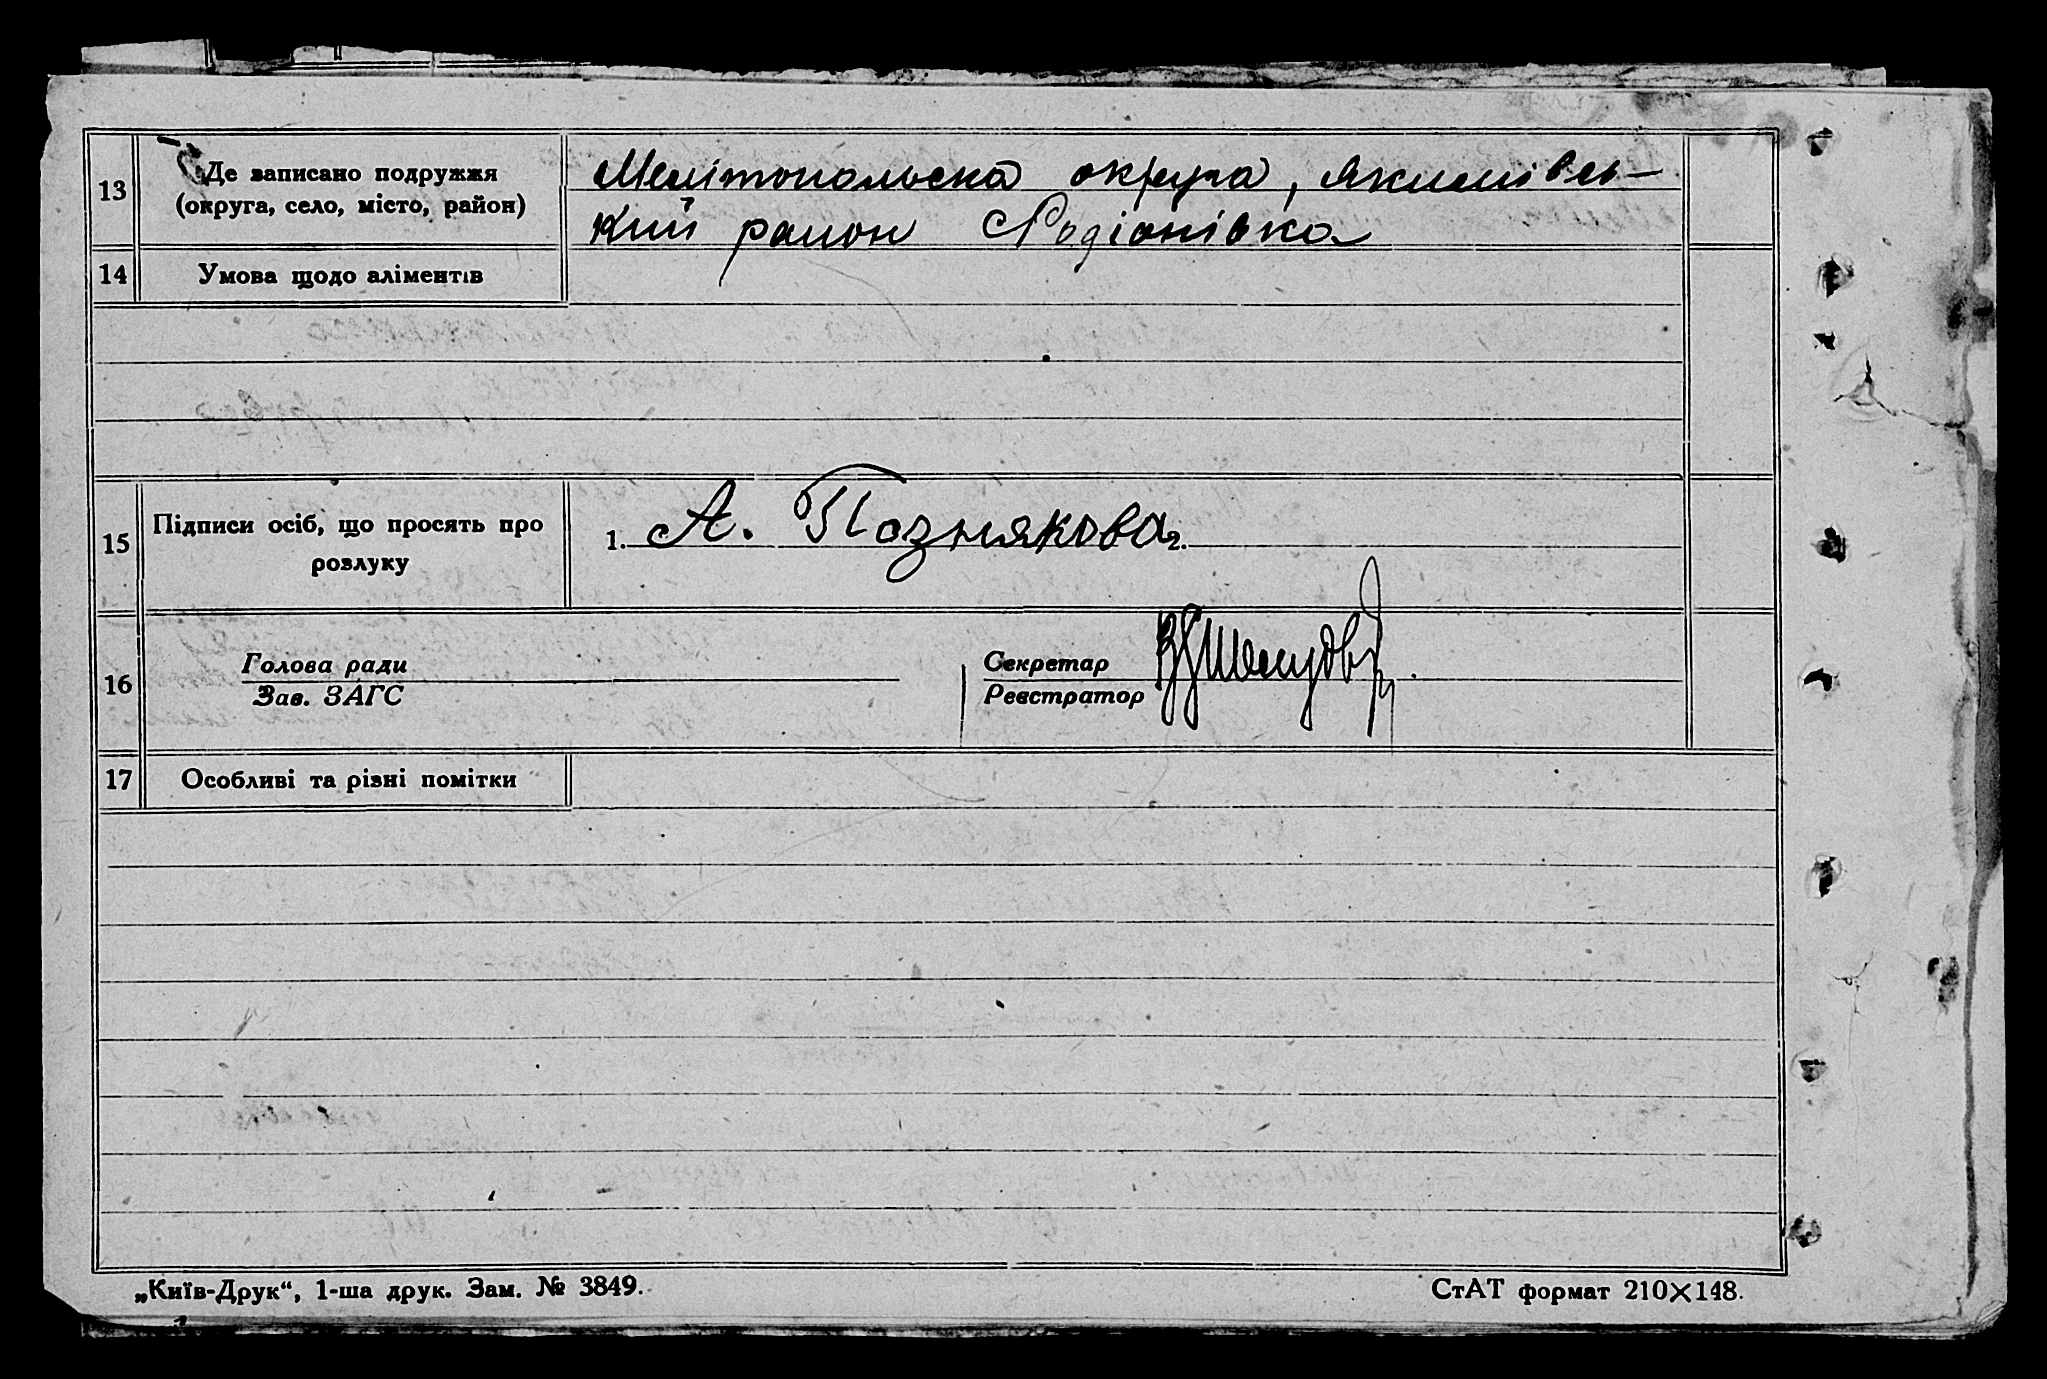 13 Де записано подружжя
(округа, село, місто, район)
Мелітопольска округа, Якимівсь-
кий район Родіонівка
14 Умова щодо аліментів
15 Підписи осіб, що просять про
розлуку
1. А. Познякова 2.
16 Голова ради
Зав. ЗАГС
Секретар
Реєстратор
17 Особливі та різні помітки
„Київ-Друк“, 1-ша друк. Зам. № 3849.
СтАТ формат 210×148.